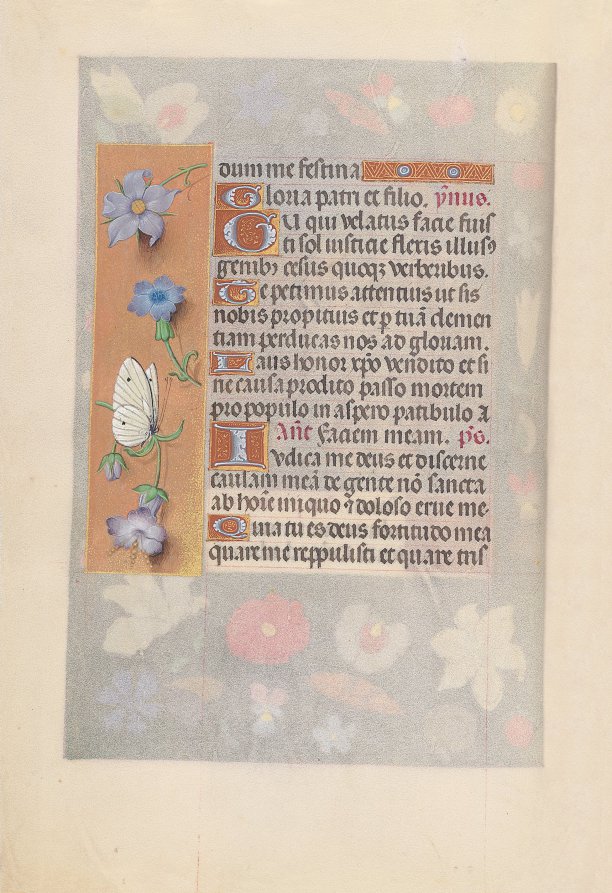 dum me festina
Gloria patri et filio. ÿnus.
Tu qui velatus facie fuis
ti sol iusticie flexis illusꝰ
genibꝫ cesus quoqꝫ verberibus.
Te petimus attentius ut sis
nobis propitius et ꝑ tuā clemen
tiam perducas nos ad gloriam.
Laus honor xp̄o vendito et si
ne causa prodito passo mortem
pro populo in aspero patibulo
Añe Faciem meam. p̄s.
Iudica me deus et discerne
causam meā de gente nō sancta
ab hoīe iniquo ⁊ doloso erue me
Quia tu es deus fortitudo mea
quare me reppulisti et quare tris